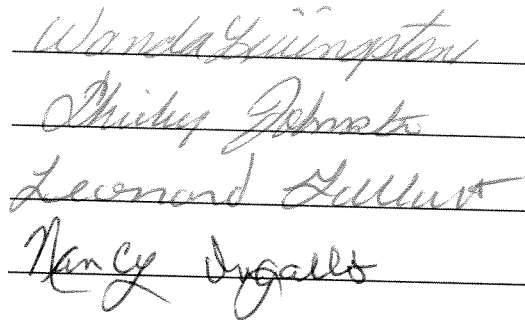 Wanda Livingston
Shirley Johnston
Leonard
Nancy Ingalls